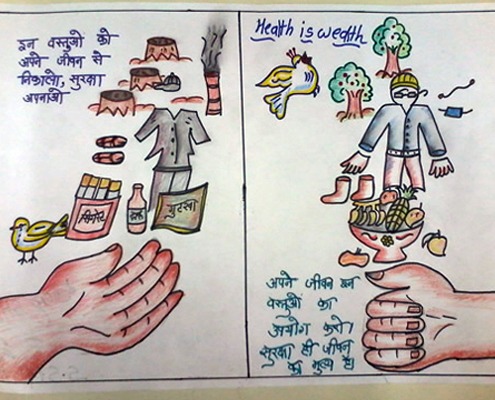 इन वस्तुओ को
अपने जीवन से
निकालो, सुरक्षा
अपनाओ
सिगरेट
गुटखा
Health is wealth
अपने जीवन इन
वस्तुओं का
उपयोग करो।
सुरक्षा ही जीवन
का मुल्य है।